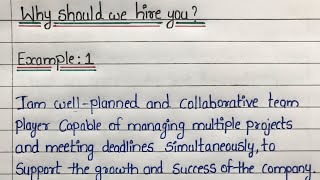 Why should we hire you?
Example:1
I am well-planned and collaborative team
Player Capable of managing multiple projects
and meeting deadlines simultaneously, to
Support the growth and success of the company.